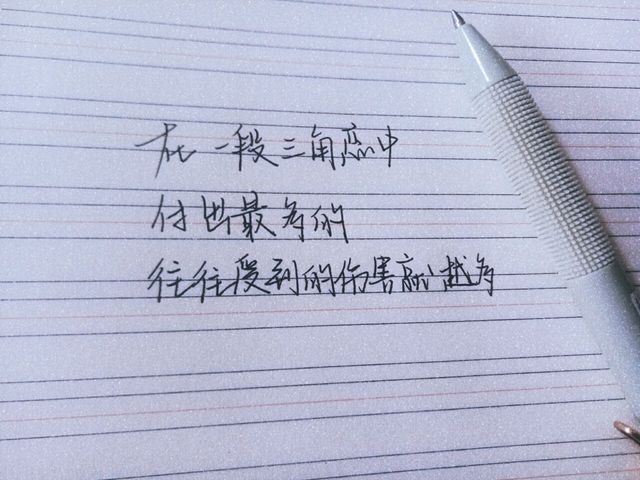 在一段三角恋中
付出最多的
往往受到的伤害就越多